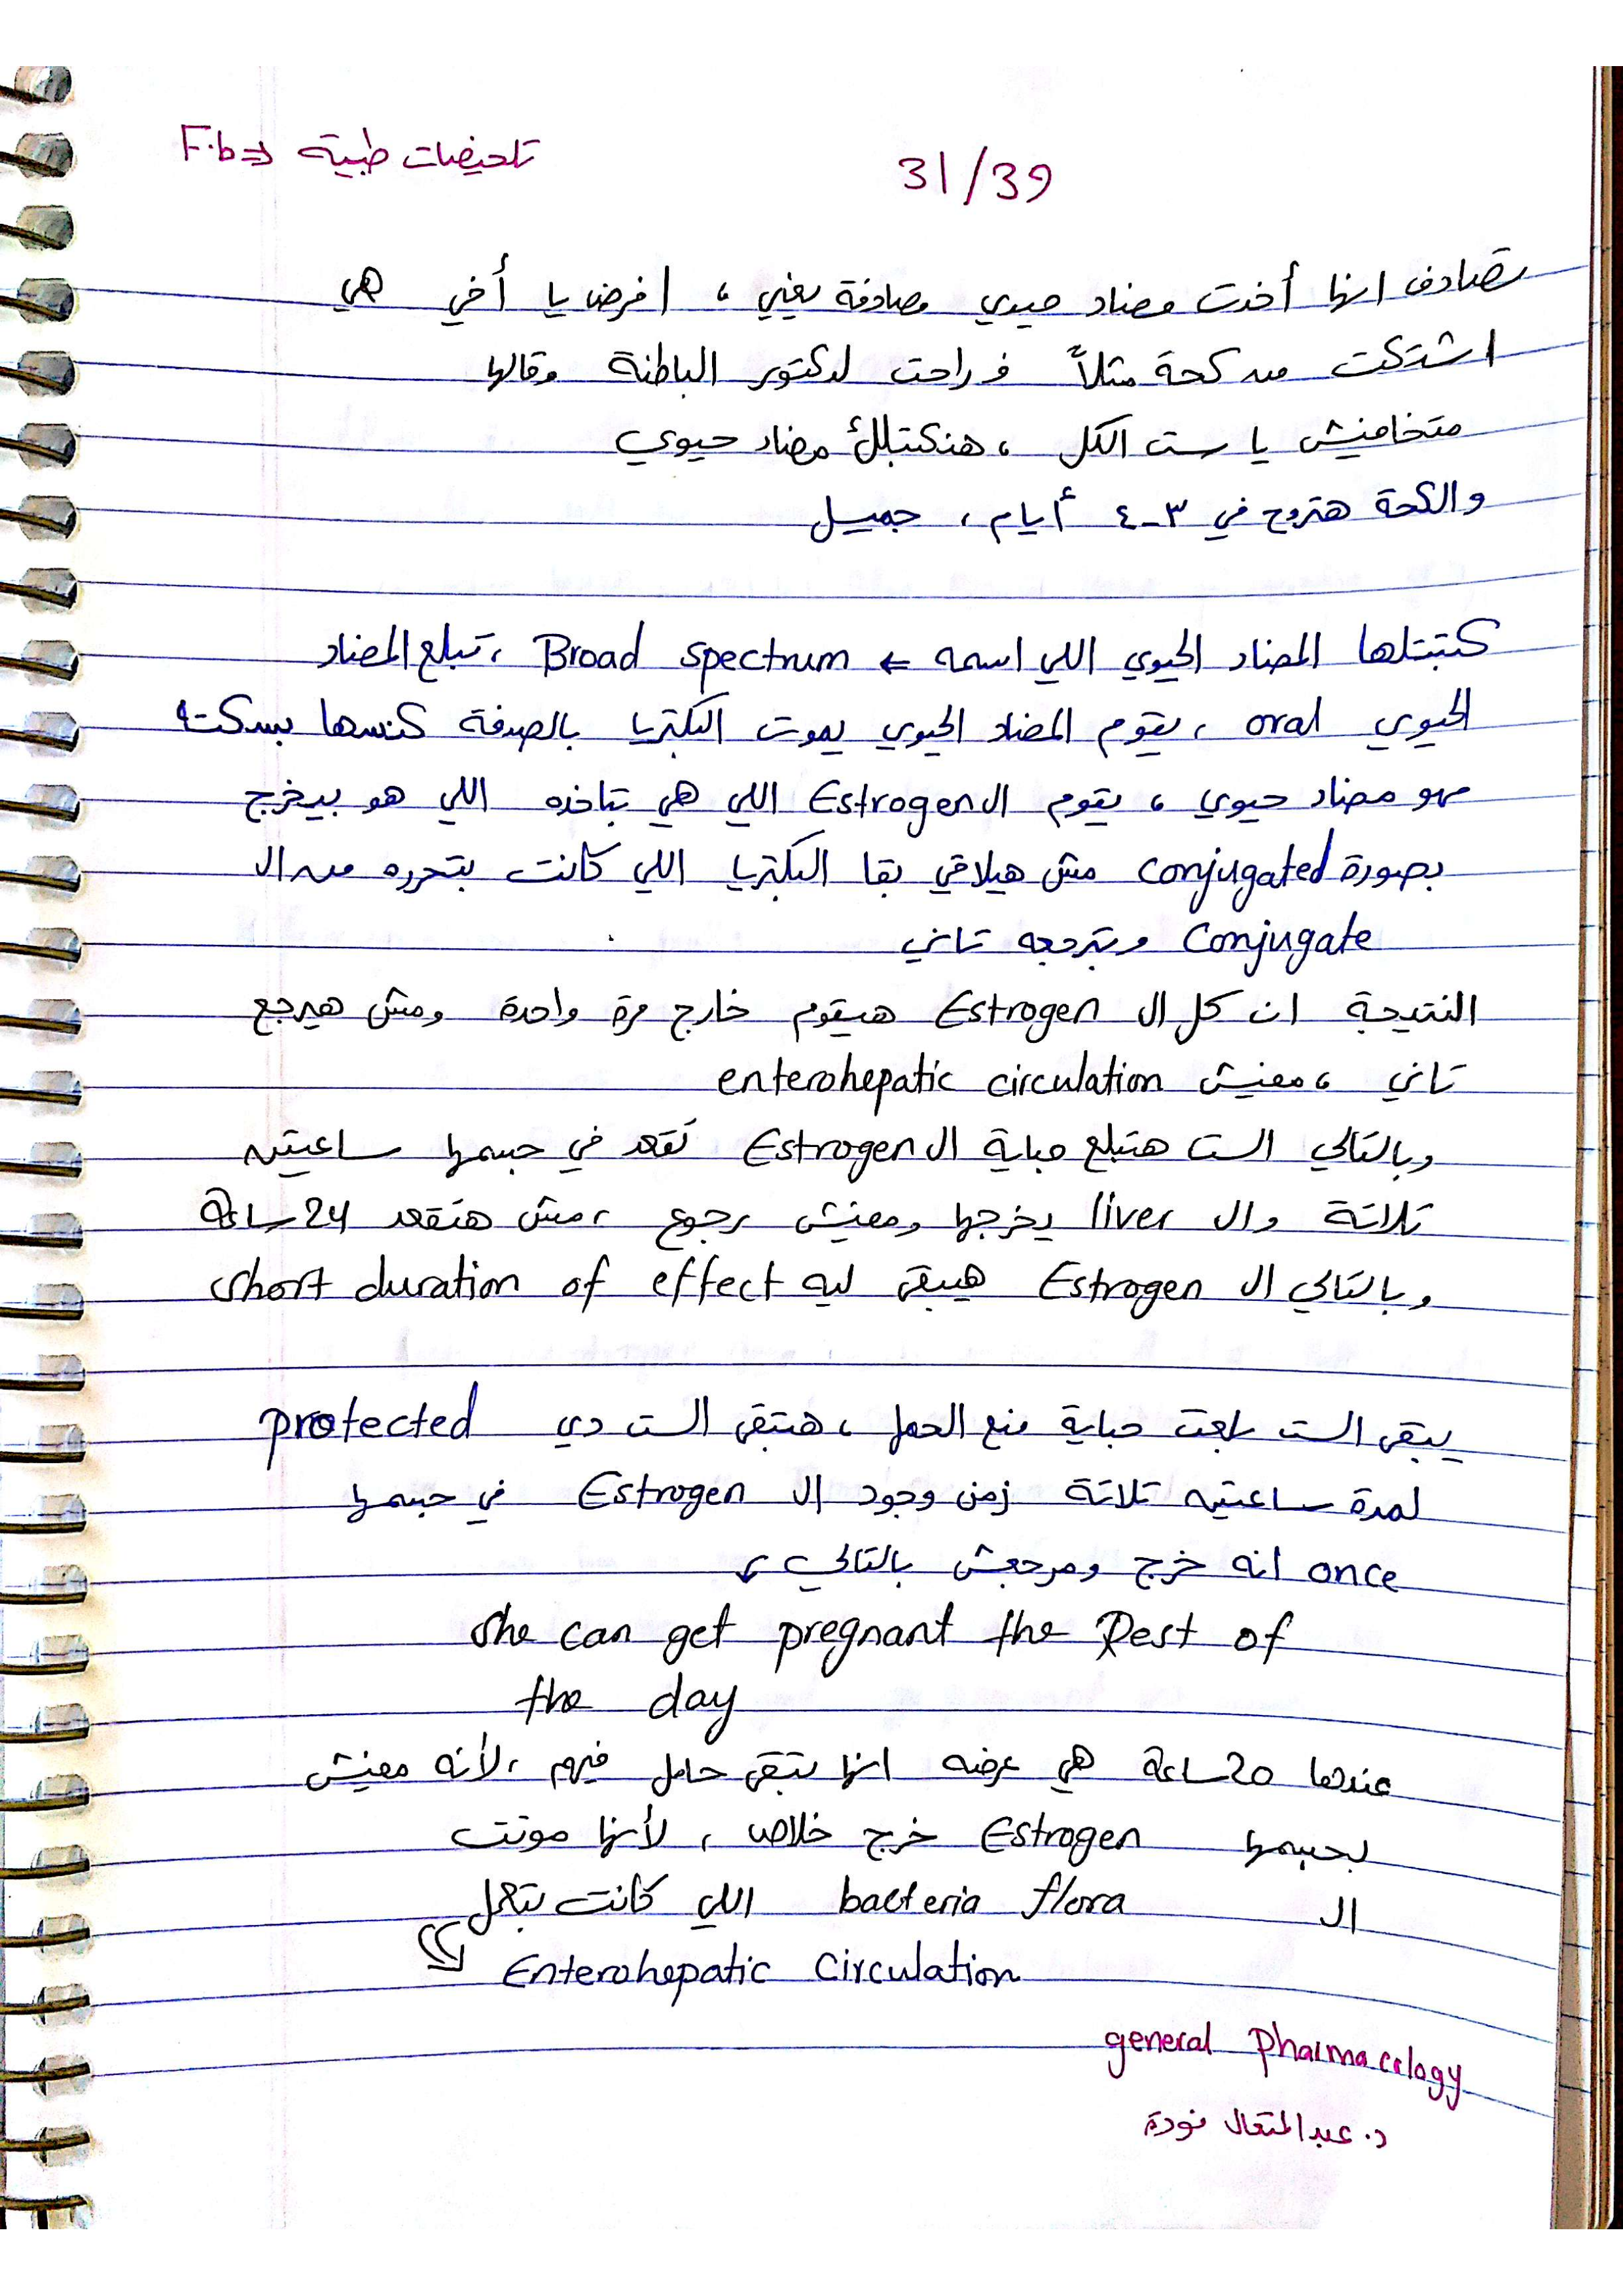 تلخيصات طبية ⇐ F.b
31/39
تصادف انها أخدت مضاد حيوي مصادفة يعني ، افرض يا أخي هي
اشتكت من كحة مثلاً فراحت لدكتور الباطنة وقالها
متخافيش يا ست الكل ، هنكتبلك مضاد حيوي
والكحة هتروح في ٣-٤ أيام ، جميل
كتبتلها المضاد الحيوي اللي اسمه ← Broad spectrum ، تبلع المضاد
الحيوي oral ، يقوم المضاد الحيوي يموت البكتريا بالصدفة كنسها بسكته
مهو مضاد حيوي ، يقوم ال Estrogen اللي هي بتاخده اللي هو بيخرج
بصورة conjugated مش هيلاقي بقا البكتريا اللي كانت بتحرره من ال
Conjugate وبترجعه تاني
النتيجة ان كل ال Estrogen هيقوم خارج مرة واحدة ومش هيرجع
تاني ، مفيش enterohepatic circulation
وبالتالي الست هتبلع حباية ال Estrogen تقعد في جسمها ساعتين
تلاتة وال liver يخرجها ومفيش رجوع ، مش هتقعد 24 ساعة
وبالتالي ال Estrogen هيبقى ليه short duration of effect
يبقى الست بلعت حباية منع الحمل ، هتبقى الست دي protected
لمدة ساعتين تلاتة زمن وجود ال Estrogen في جسمها
once انه خرج ومرجعش بالتالي ↙
she can get pregnant the Rest of
the day
عندها 20 ساعة هي عرضه انها تبقى حامل فيهم ، لأنه مفيش
بجسمها Estrogen خرج خلاص ، لأنها موتت
ال bacteria flora اللي كانت بتعمل
Enterohepatic Circulation
general Pharmacology
د. عبدالمتعال فودة